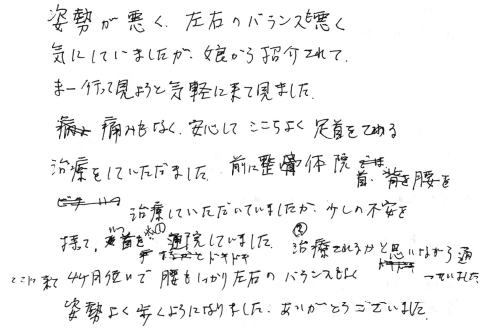 姿勢が悪く、左右のバランスも悪く
気にしていましたが、娘から紹介されて、
まー行って見ようと気軽に来て見ました。
痛みもなく、安心して ここちよく 足首をてめる
治療をしていただました。前に整骨体院
首、背を腰を
治療していただいていましたが、少しの不安を
持て、いつ 通院していました。② 治療されるかと思いながら通
っていました
ここに来て 4ヶ月位いで 腰もしっかり左右のバランスもよく
姿勢よく歩くようになりました。ありがとうございました。